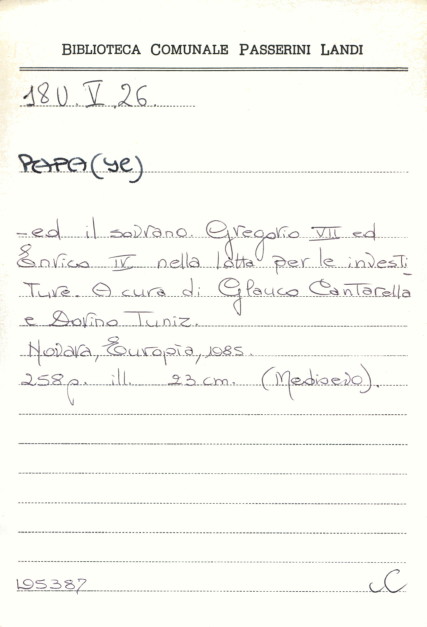 BIBLIOTECA COMUNALE PASSERINI LANDI
18U.V.26.
PAPA(ye)
-ed il sovrano. Gregorio VII ed
Enrico IV nella lotta per le investi
ture. A cura di Glauco Cantarella
e Dorino Tuniz.
Novara, Europìa, 1985.
258p. ill. 23cm. (Medioevo).
195387